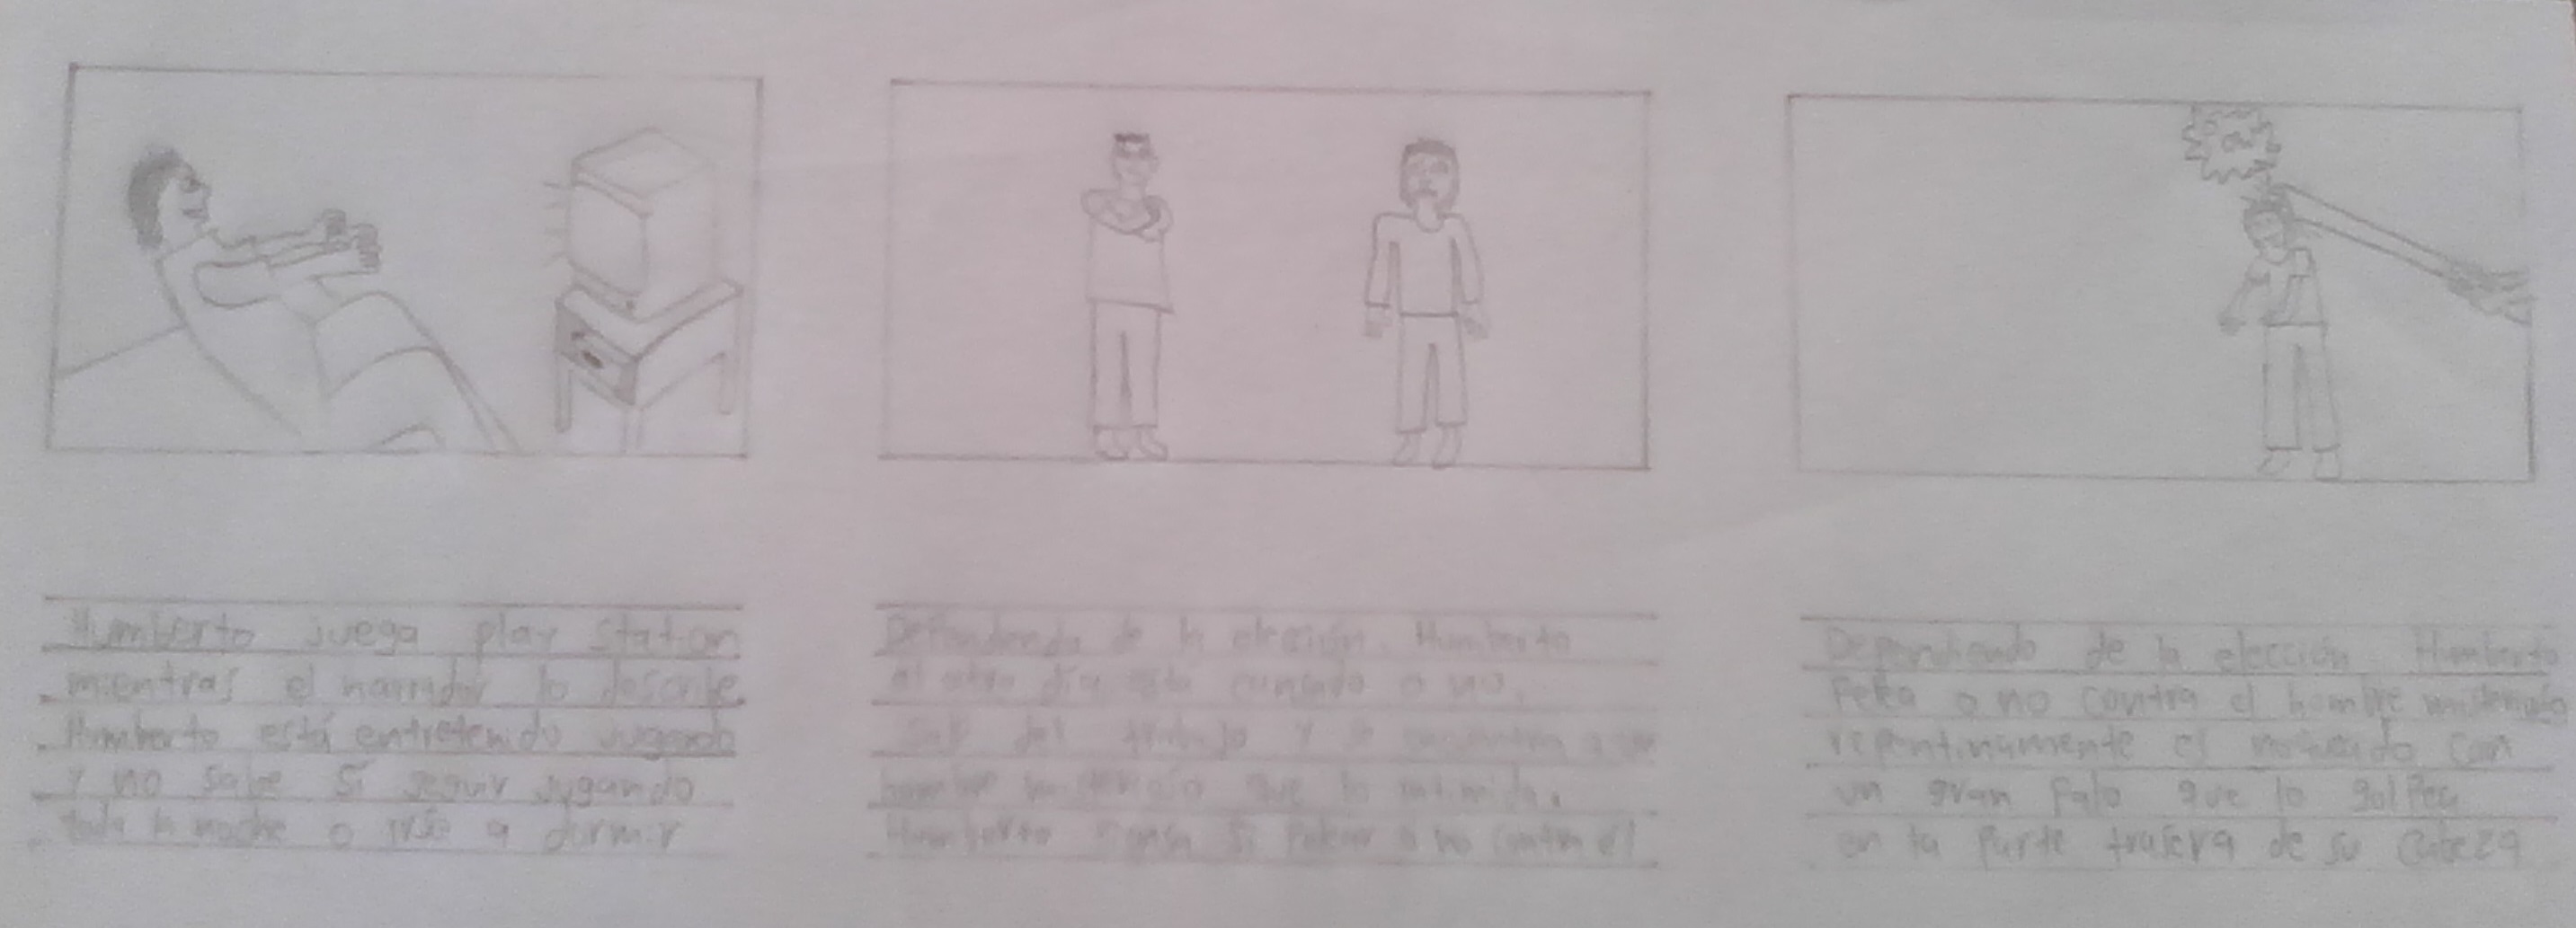 Humberto juega play station
mientras el narrador lo describe.
Humberto está entretenido jugando
y no sabe si seguir jugando
toda la noche o irse a dormir
Dependiendo de la elección, Humberto
al otro día está cansado o no.
Sale del trabajo y se encuentra a un
hombre misterioso que lo intimida.
Humberto si pelear o no contra él
Dependiendo de la elección Humberto
Pelea o no contra el hombre misterioso
repentinamente es con
un gran palo que lo golpea
en la parte trasera de su cabeza